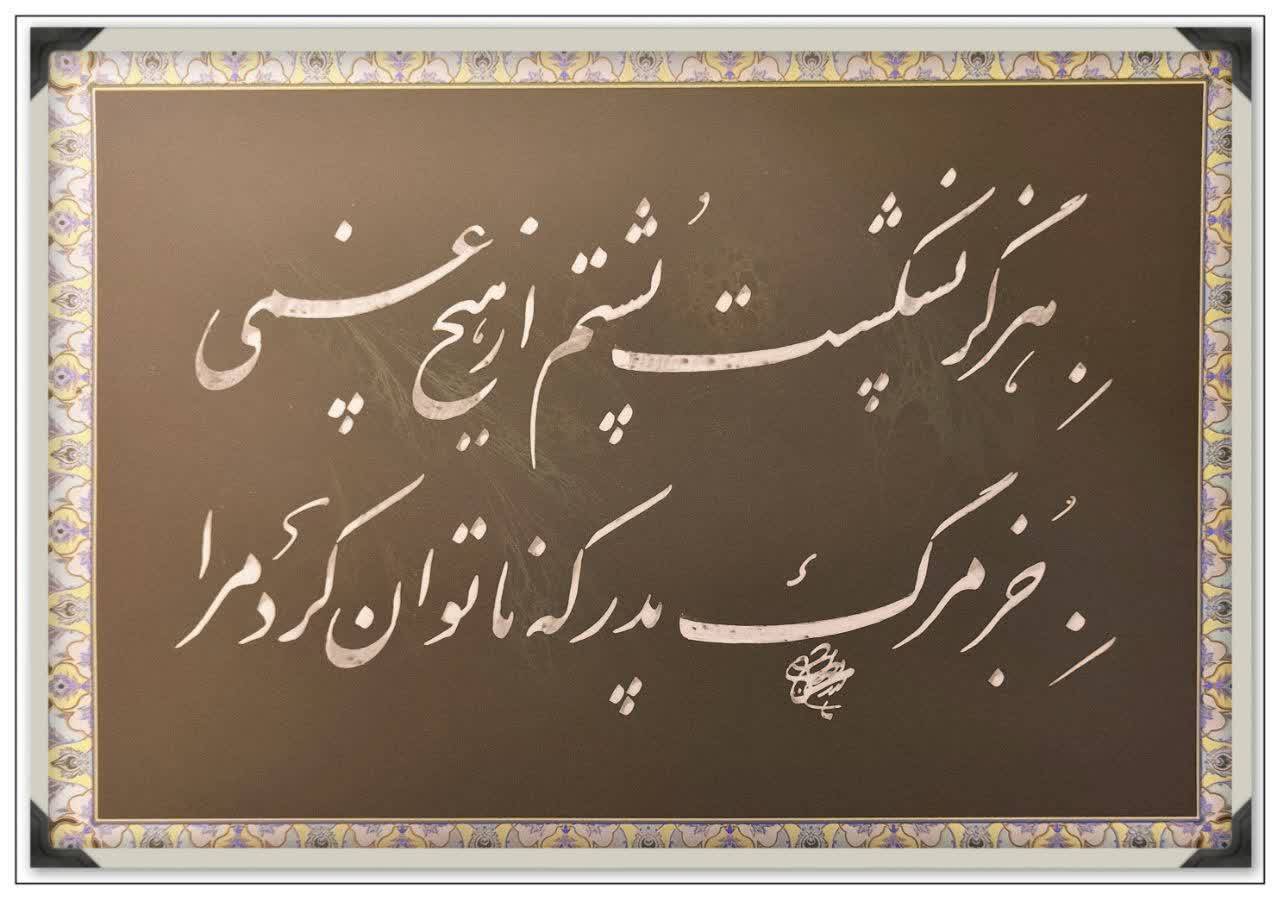 هرگز نشکست پُشتم از هیچ غمی
جُز مرگ پدر که ناتوان کرد مرا